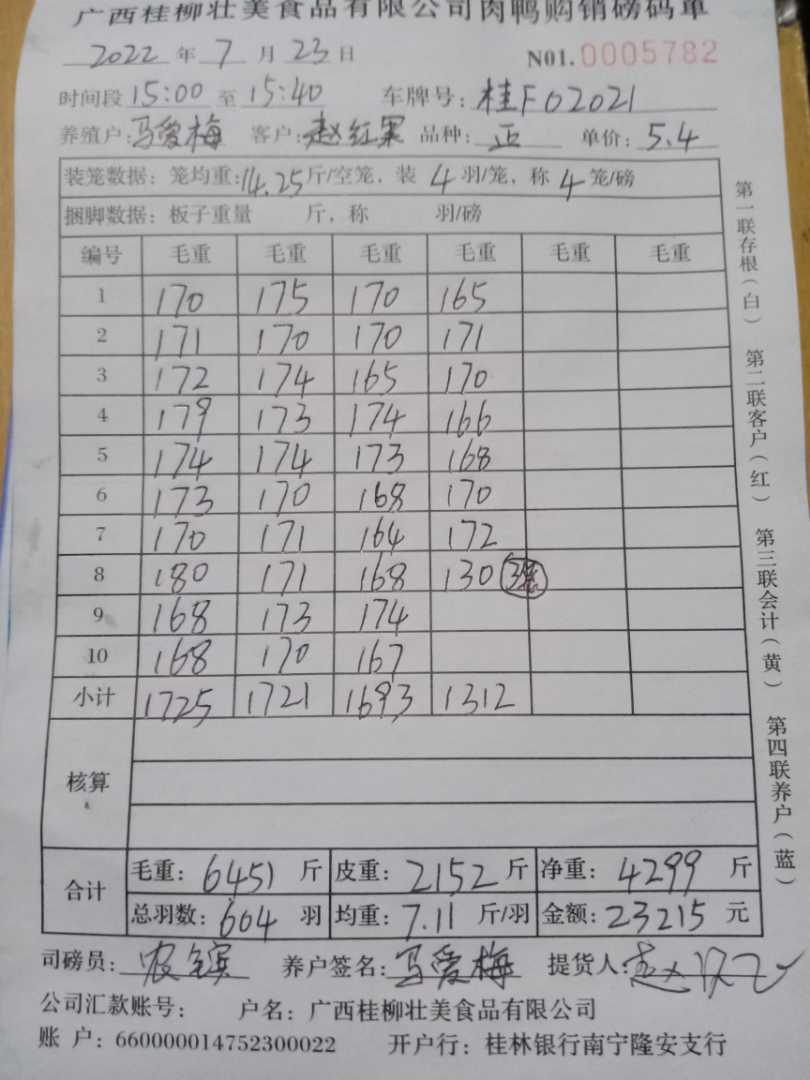 广西桂柳壮美食品有限公司肉鸭购销磅码单
2022 年 7 月 23 日 N01. 0005782
时间段 15:00 至 15:40 车牌号: 桂F02021
养殖户: 马爱梅 客户: 赵红军 品种: 正 单价: 5.4
装笼数据: 笼均重: 14.25 斤/空笼, 装 4 羽/笼, 称 4 笼/磅
捆脚数据: 板子重量 斤, 称 羽/磅
编号 毛重 毛重 毛重 毛重 毛重 毛重
1 170 175 170 165
2 171 170 170 171
3 172 174 165 170
4 179 173 174 166
5 174 174 173 168
6 173 170 168 170
7 170 171 164 172
8 180 171 168 130
9 168 173 174
10 168 170 167
小计 1725 1721 1693 1312
核算
合计
毛重: 6451 斤 皮重: 2152 斤 净重: 4299 斤
总羽数: 604 羽 均重: 7.11 斤/羽 金额: 23215 元
司磅员: 养户签名: 马爱梅 提货人:
公司汇款账号: 户名: 广西桂柳壮美食品有限公司
账 户: 660000014752300022 开户行: 桂林银行南宁隆安支行
第一联存根(白) 第二联客户(红) 第三联会计(黄) 第四联养户(蓝)